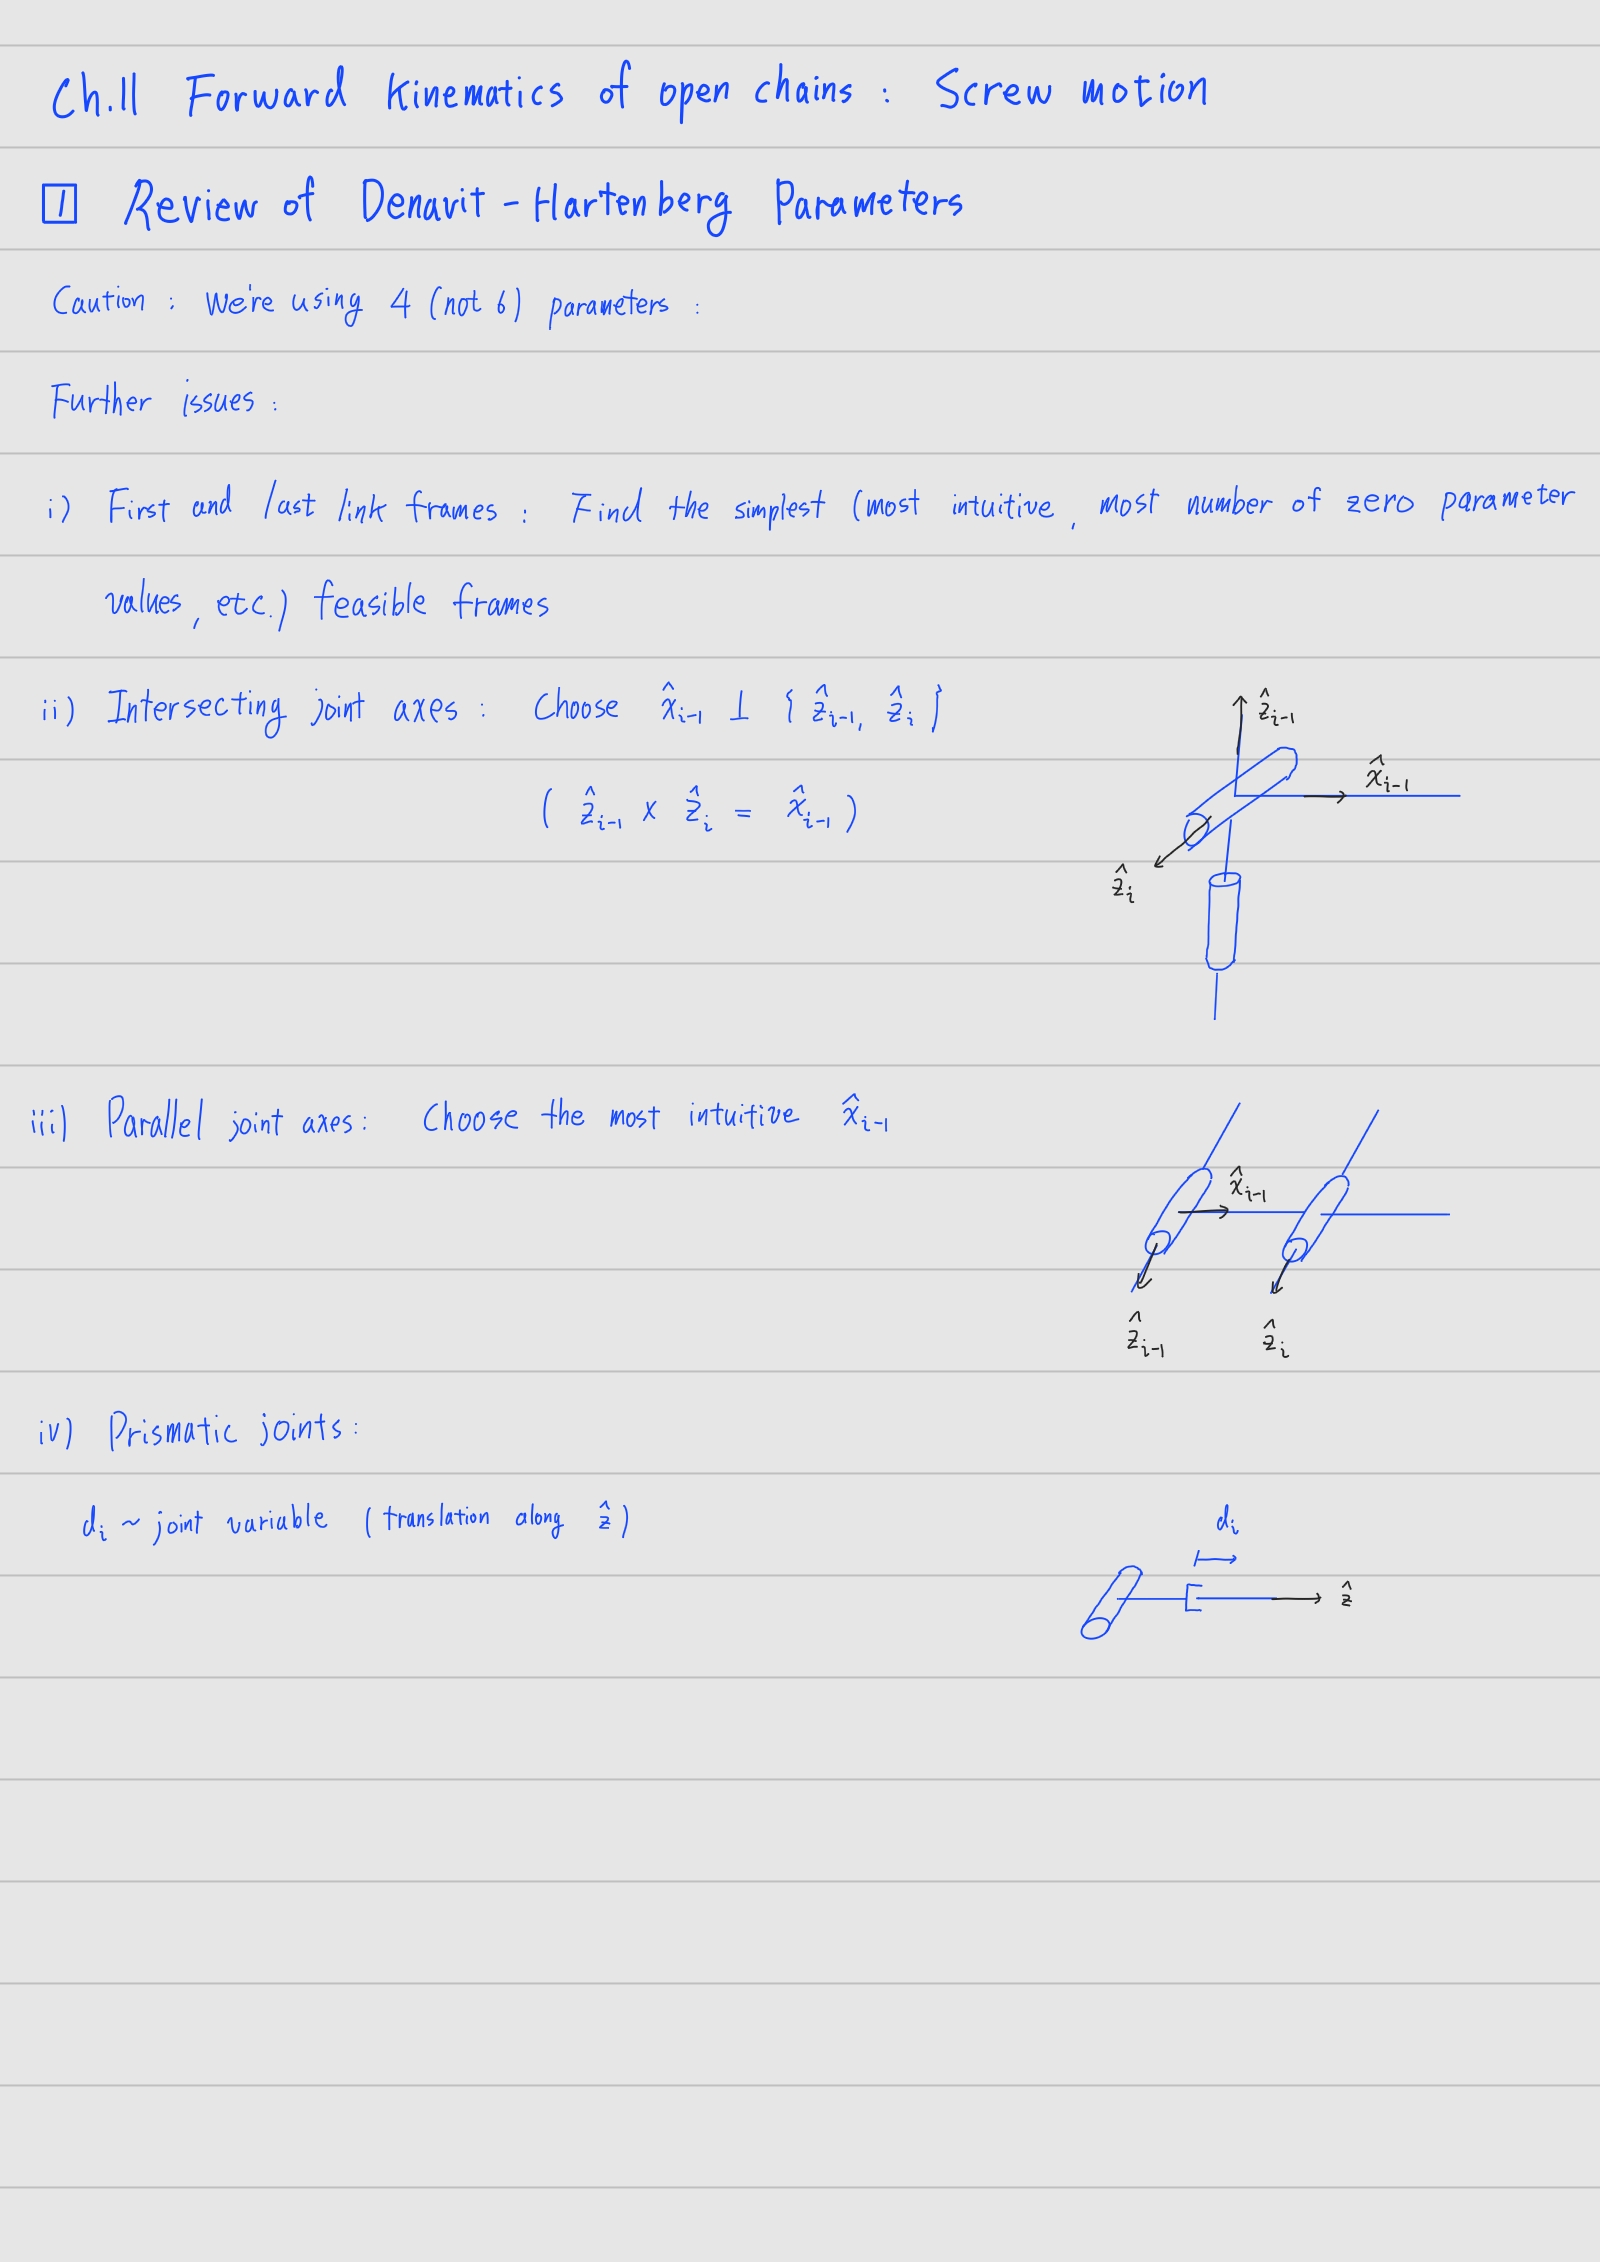 Ch.11 Forward Kinematics of open chains : Screw motion
1 Review of Denavit - Hartenberg Parameters
Caution : We're using 4 (not 6) parameters :
Further issues :
i) First and last link frames : Find the simplest (most intuitive, most number of zero parameter
values, etc.) feasible frames
ii) Intersecting joint axes : Choose x̂ᵢ₋₁ ⊥ { ẑᵢ₋₁, ẑᵢ }
( ẑᵢ₋₁ × ẑᵢ = x̂ᵢ₋₁ )
ẑᵢ₋₁
x̂ᵢ₋₁
ẑᵢ
iii) Parallel joint axes : Choose the most intuitive x̂ᵢ₋₁
x̂ᵢ₋₁
ẑᵢ₋₁ ẑᵢ
iv) Prismatic joints :
dᵢ ~ joint variable (translation along ẑ)
dᵢ
ẑ